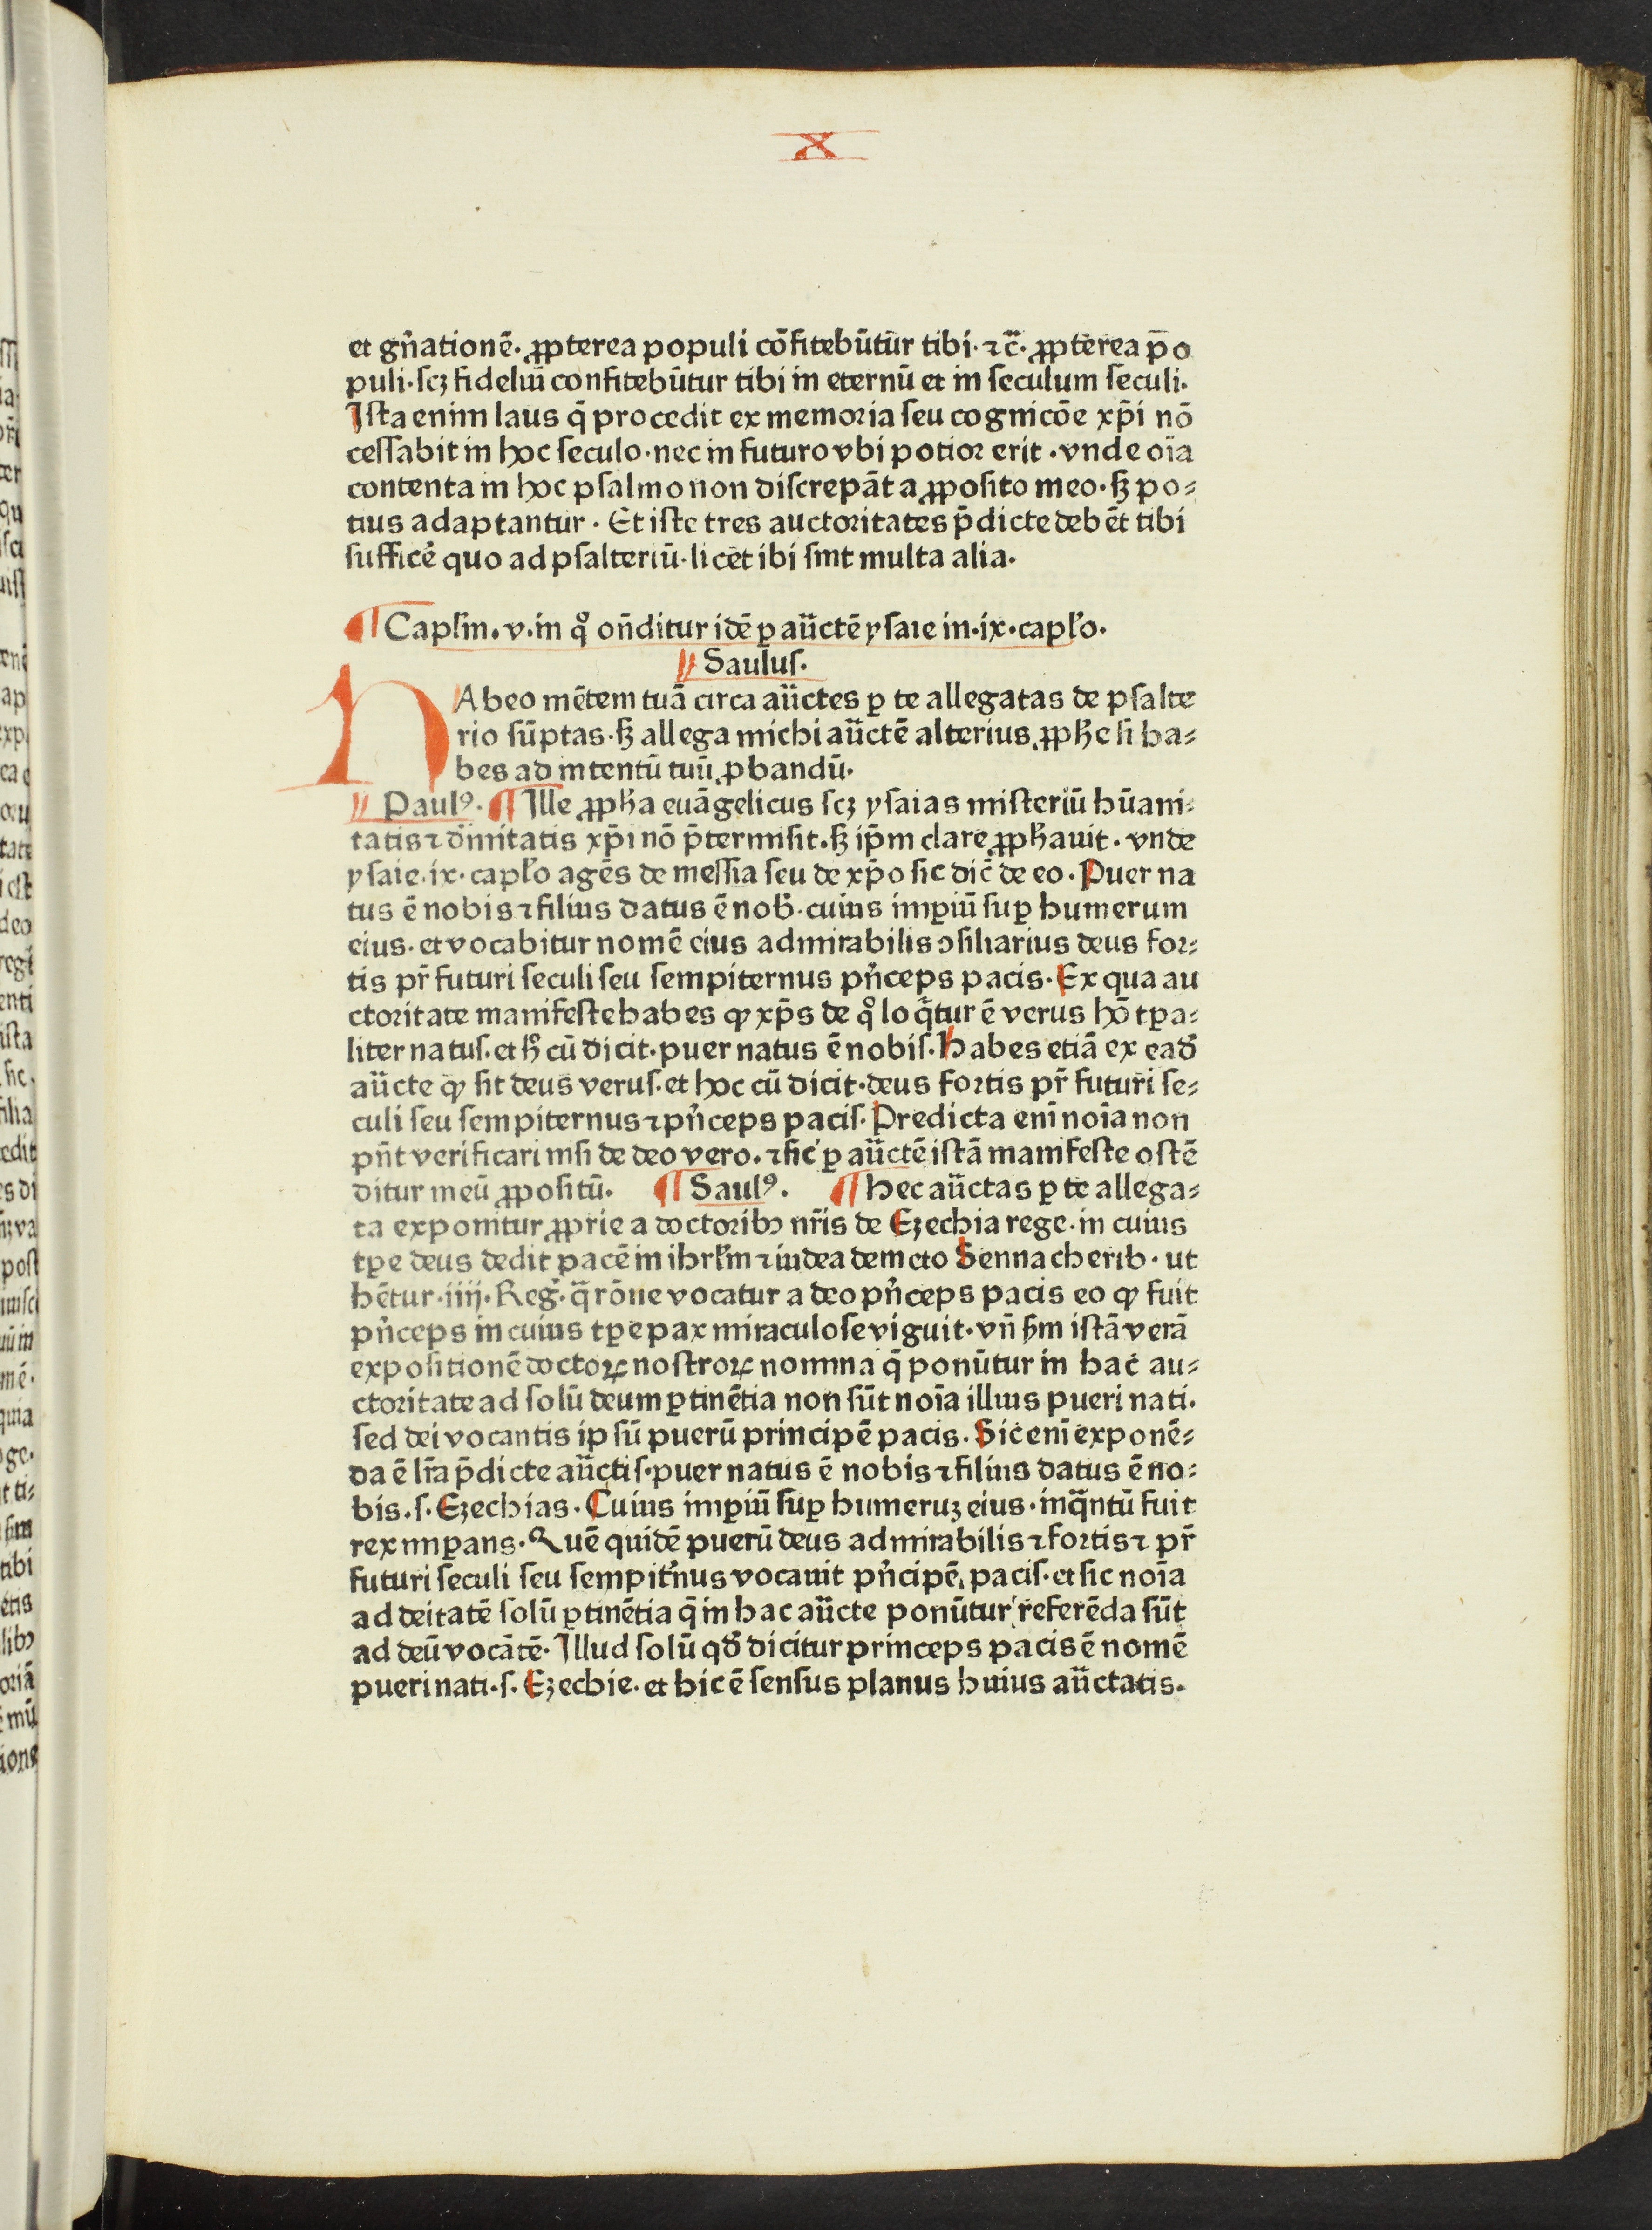 X
et gñationē· ꝓpterea populi cōfitebūtur tibi·⁊c̄· ꝓpterea po
puli·scꝫ fideliū confitebūtur tibi in eternū et in seculum seculi·
Ista enim laus q̄ procedit ex memoria seu cognicōe xp̄i nō
cessabit in hoc seculo·nec in futuro vbi potior erit·vnde oīa
contenta in hoc psalmo non discrepāt a ꝓposito meo·sꝫ po⸗
tius adaptantur· Et iste tres auctoritates p̄dicte debēt tibi
sufficē quo ad psalteriū·licet ibi sint multa alia·
¶ Capl'm·v·in qͦ oñditur idē ꝑ auctē ysaie in·ix·capl'o·
Saulus·
HAbeo mētem tuā circa auctes ꝑ te allegatas de psalte
rio sūptas·sꝫ allega michi auctē alterius ꝓphe si ha⸗
bes ad intentū tuū ꝓbandū·
Paulꝰ· ¶ Ille ꝓpha euāgelicus scꝫ ysaias misteriū hūani⸗
tatis ⁊ diuinitatis xp̄i nō p̄termisit·sꝫ ip̄m clare ꝓphauit·vnde
ysaie·ix·capl'o agēs de messia seu de xp̄o sic dic̄ de eo·Puer na
tus ē nobis ⁊ filius datus ē nob·cuius imꝑiū suꝑ humerum
eius·et vocabitur nomē eius admirabilis ꝯsiliarius deus for⸗
tis pr̄ futuri seculi seu sempiternus pñceps pacis·Ex qua au
ctoritate manifeste habes ꝙ xp̄s de qͦ loq̄tur ē verus hō tꝑa⸗
liter natus·et hͦ cū dicit·puer natus ē nobis·Habes etiā ex eađ
aucte ꝙ sit deus verus·et hoc cū dicit·deus fortis pr̄ futuri se⸗
culi seu sempiternus ⁊ pñceps pacis·Predicta enī noīa non
pñt verificari nisi de deo vero·⁊ sic ꝑ auctē istā manifeste ostē
ditur meū ꝓpositū· ¶ Saulꝰ· ¶ Hec auctas ꝑ te allega⸗
ta exponitur ꝓprie a doctoribꝫ nr̄is de Ezechia rege·in cuius
tꝑe deus dedit pacē in ihrl'm ⁊ iudea deuicto Sennacherib·ut
hētur·iiij·Reg·q̄ rōne vocatur a deo pñceps pacis eo ꝙ fuit
pñceps in cuius tꝑe pax miraculose viguit·vñ scđm istā verā
expositionē doctoꝝ nostroꝝ nomina q̄ ponūtur in hac au⸗
ctoritate ad solū deum ꝑtinētia non sūt noīa illius pueri nati·
sed dei vocantis ipsū puerū principē pacis·Sic enī exponē⸗
da ē lr̄a p̄dicte auctis·puer natus ē nobis ⁊ filius datus ē no⸗
bis·s·Ezechias·Cuius imꝑiū suꝑ humeruꝫ eius·inq̄ntū fuit
rex imꝑans·Quē quidē puerū deus admirabilis ⁊ fortis ⁊ pr̄
futuri seculi seu sempit'nus vocauit pñcipē pacis·et sic noīa
ad deitatē solū ꝑtinētia q̄ in hac aucte ponūtur referēda sūt
ad deū vocātē·Illud solū qđ dicitur princeps pacis ē nomē
pueri nati·s·Ezechie·et hic ē sensus planus huius auctatis·